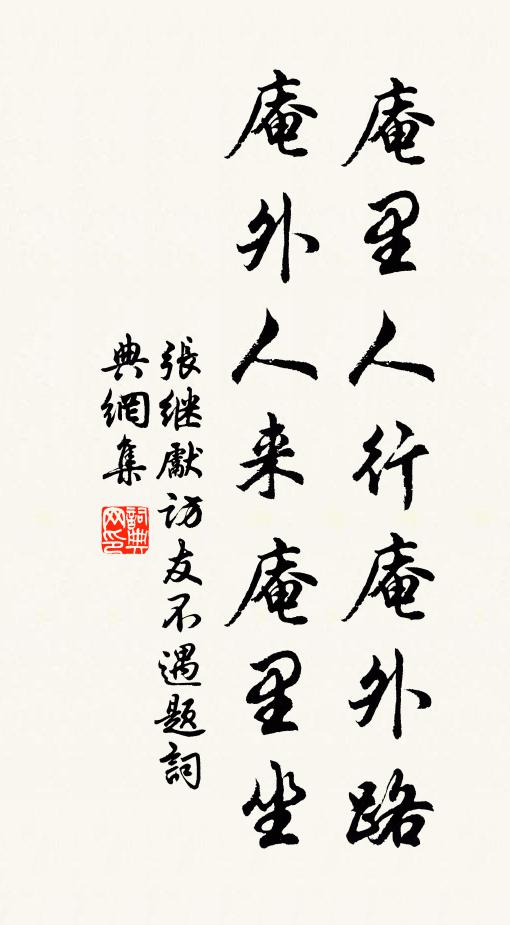 庵里人行庵外路
庵外人来庵里坐
張继獻访友不遇题詞
典網集
詞典网印